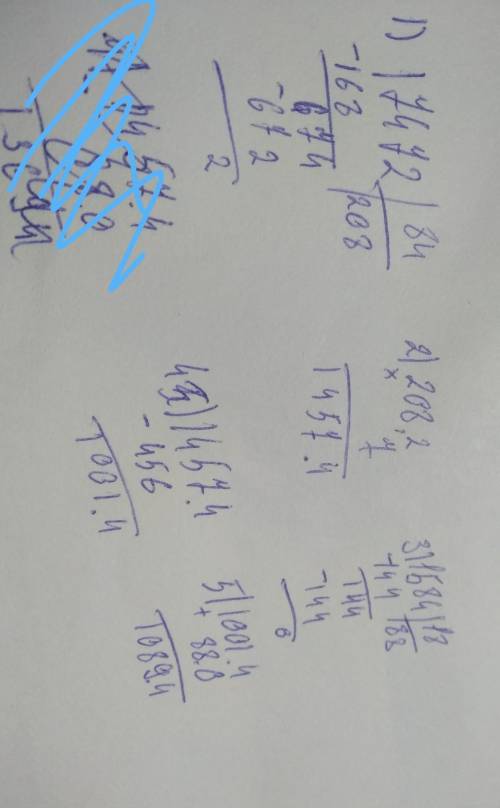 1) 17472 | 84
-168 | 208
674
-672
2
2) 208,2
× 7
1457.4
3) 1584 | 18
-144 | 88
144
-144
0
4) 1457.4
- 456
1001.4
5) 1001.4
+ 88.0
1089.4